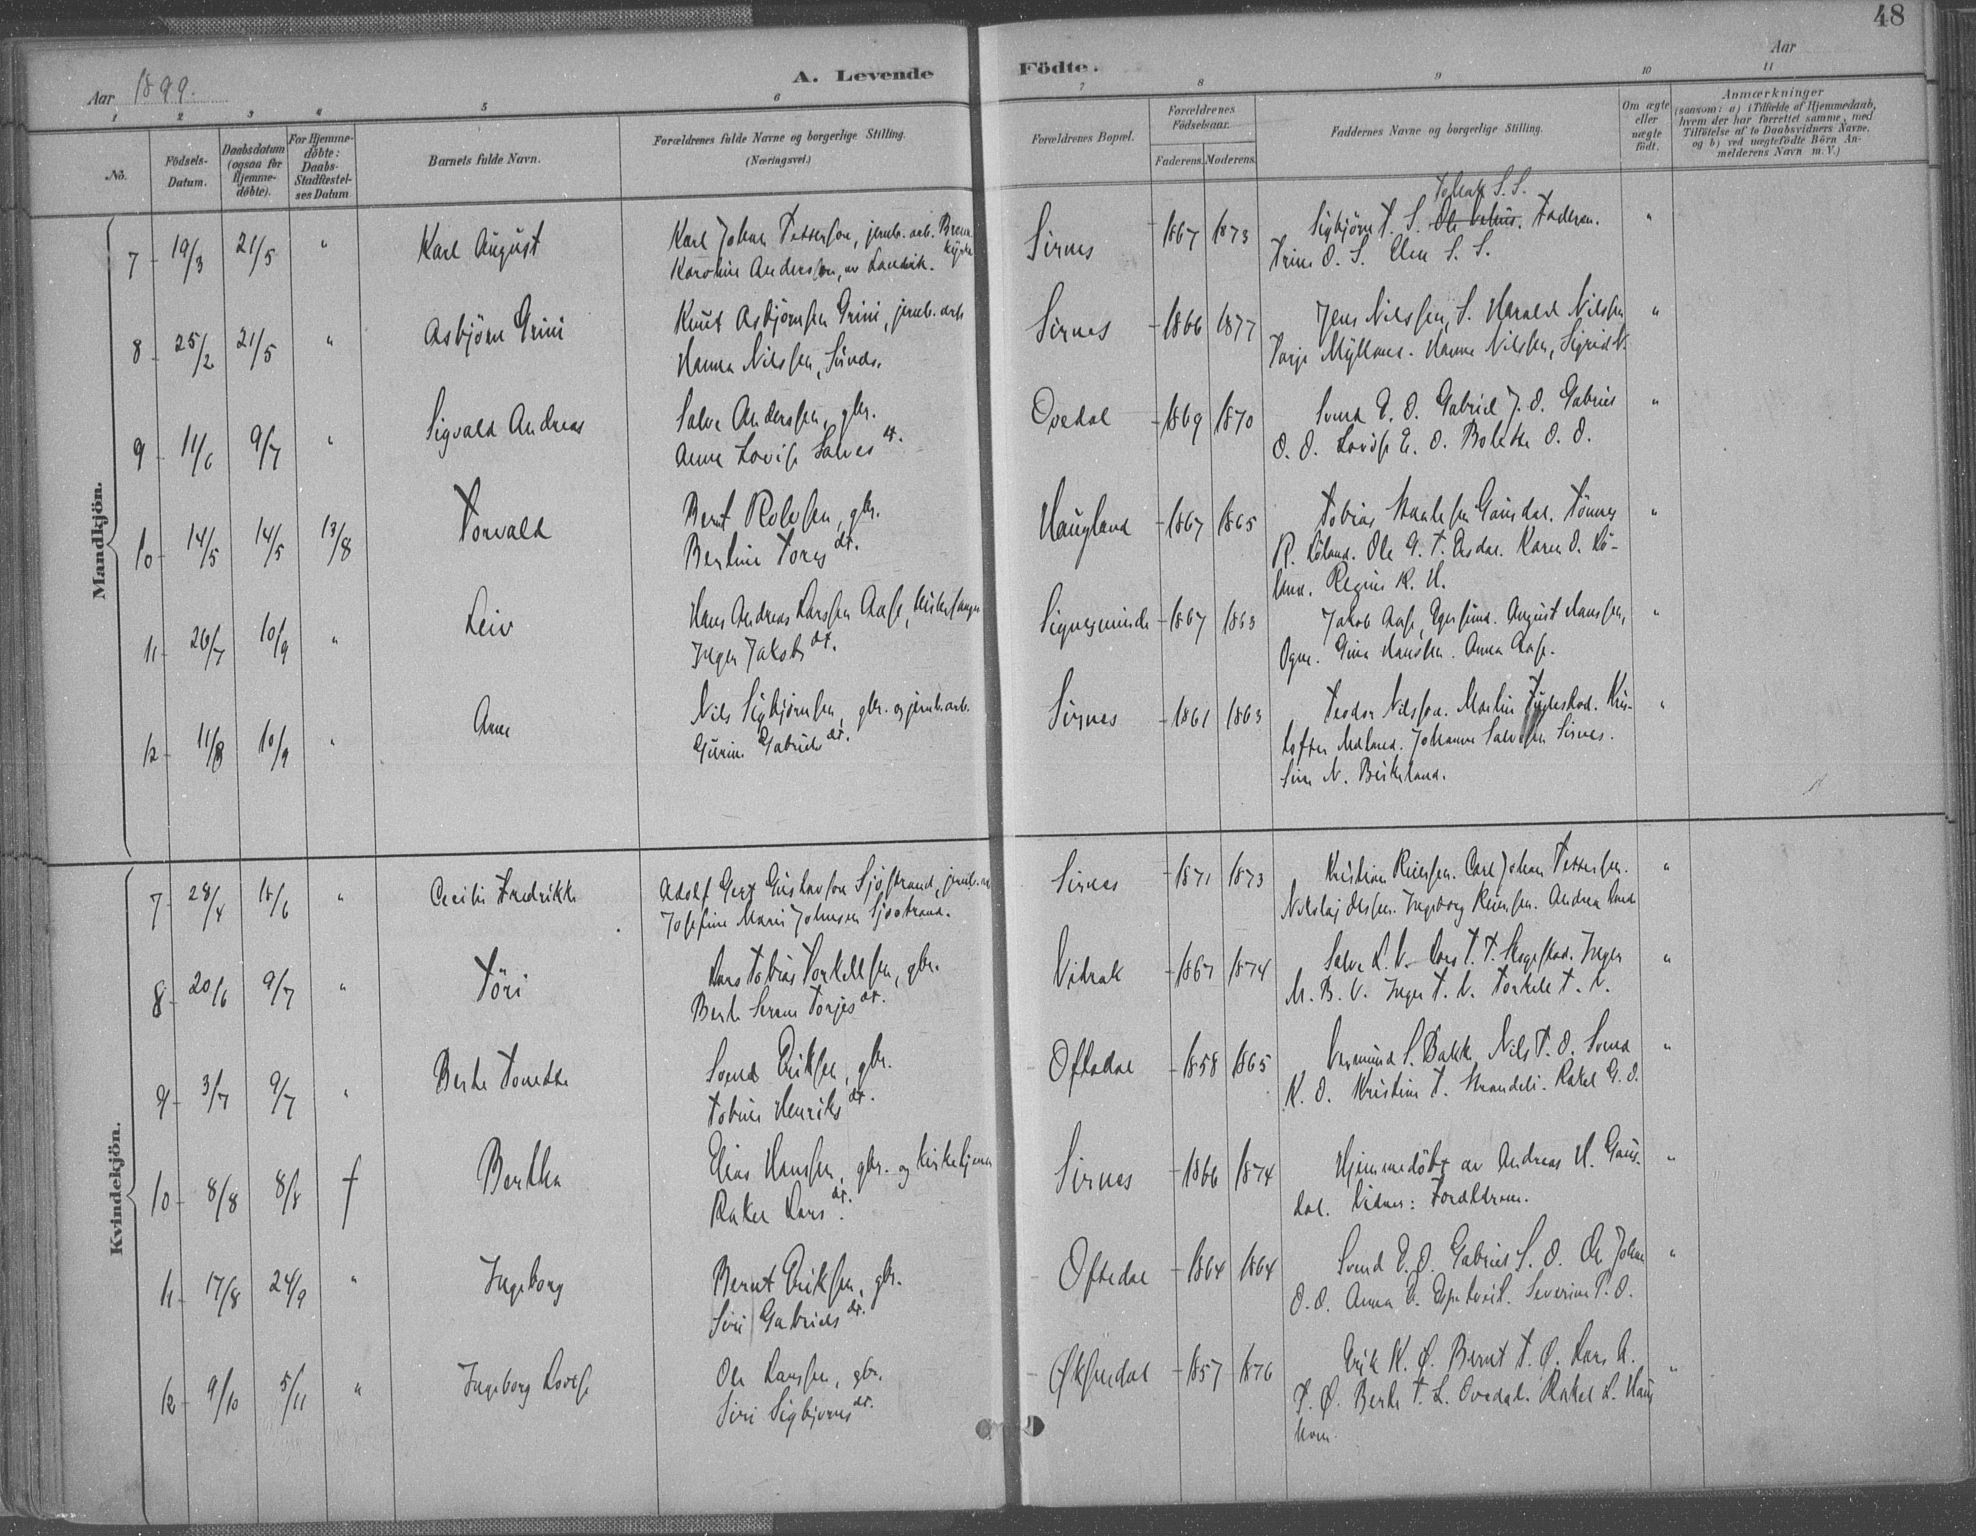 48
Aar 1899.
A. Levende
Födte.
Aar
1 2 3 4 5 6 7 8 9 10 11
No.
Födsels-Datum.
Daabsdatum (ogsaa for Hjemme-döbte).
For Hjemme-döbte: Daabs-Stadfæstel-ses Datum
Barnets fulde Navn.
Forældrenes fulde Navne og borgerlige Stilling.
(Næringsvei.)
Forældrenes Bopæl.
Forældrenes Födselsaar.
Faderens.
Moderens.
Faddernes Navne og borgerlige Stilling.
Om ægte eller uægte födt.
Anmærkninger
(saasom: a) i Tilfælde af Hjemmedaab,
hvem der har forrettet samme, med
Tilföielse af to Daabsvidners Navne,
og b) ved uægtefödte Börn An-
melderens Navn m. V.)
Mandkjön.
7 19/3 21/5 " Karl August
Karl Johan Petterson, jernb. arb.
Karoline Andersen, av Landvik.
Sirnes 1867 1873
Sigbjörn T. S. Johan S. S. Faderen.
Trine O. S. Elen S. S. "
8 25/2 21/5 " Asbjörn Grini
Knut Asbjörnsen Grini, jernb. arb.
Hanna Nilssen, Sirnes.
Sirnes 1866 1877
Jens Nilssen, S. Harald Nilssen
Hanna Nilssen, Sigrid N. "
9 11/6 9/7 " Sigvald Andreas
Salve Anderssen, gbr.
Anna Lovise Salves dt.
Ovedal 1869 1870
Svend E. O. Gabriel J. O. Gabriel
O. O. Lovise E. O. Bolette O. O. "
10 14/5 14/5 13/8 Torvald
Bernt Rolvsen, gbr.
Bertine Tores dt.
Haugland 1867 1865
Tobias Gausdal. Tönnes
R. Löland. Ole G. T. Karen O. Lö-
land. Regine R. H. "
11 26/7 10/9 " Leiv
Hans Andreas Larssen Aase,
Inger Jakobs dt.
1867 1863
Jakob Aase, Egersund. August Hanssen,
Ogne. Gina Hanssen. Anna Aase. "
12 11/8 10/9 " Arne
Nils Sigbjörnsen, gbr. og jernb. arb.
Gurine Gabriels dt.
Sirnes 1861 1863
Teodor Nilssen. Martin Kris-
toffer Johanne Salvesen Sirnes.
Sine N. Birkeland. "
Kvindekjön.
7 28/4 18/6 " Cecilie Fredrikke
Adolf Gert Gustavson Sjöstrand, jernb. a
Josefine Marie Johnsen Sjöstrand.
Sirnes 1871 1873
Kristian Reiersen. Carl Johan Pettersen.
Nikolaj Olssen. Ingeborg Reiersen. Andrea "
8 20/6 9/7 " Töri
Lars Tobias Torkelsen, gbr.
Berte Serene Torjes dt.
Vidrak 1867 1874
Salve L. V. Lars T. T. Skogestad. Inger
M. B. V. Inger T. V. Torkele T. V. "
9 3/7 9/7 " Berte Tomette
Svend Eriksen, gbr.
Tobine Henriks dt.
Oftedal 1858 1865
Vermund S. Bakke, Nils T. O. Svend
K. O. Kristine T. Strandeli. Rakel G. O. "
10 8/8 8/8 † Bertha
Elias Hanssen, gbr. og kirketjener
Rakel Lars dt.
Sirnes 1866 1874
Hjemmedöbt av Andreas H. Gaus-
dal. Vidner: Forældrene. "
11 17/8 24/9 " Ingeborg
Bernt Eriksen, gbr.
Siri Gabriels dt.
Oftedal 1864 1864
Svend E. O. Gabriel S. O. Ole Johan
O. O. Anna E. Severine P. O. "
12 9/10 5/11 " Ingeborg Lovise
Ole Larssen, gbr.
Siri Sigbjörns dt.
Øksendal 1857 1876
Erik K. Ø. Bernt T. Ø. Lars A.
P. Ø. Berte T. L. Ovedal. Rakel L. Haug
hom. "